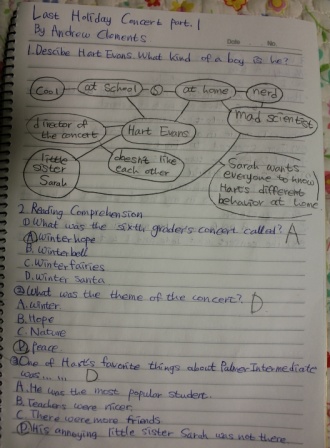 Last Holiday Concert part. 1
By Andrew Clements
Date No.
1. Describe Hart Evans. What kind of a boy is he?
Cool at school S at home nerd
mad scientist
director of the concert
Hart Evans
little sister Sarah
doesn't like each other
Sarah wants
everyone to know
Hart's different
behavior at home
2. Reading Comprehension
① What was the sixth grader's concert called? A
A. Winterhope
B. Winterbell
C. Winterfairies
D. Winter Santa
② What was the theme of the concert? D
A. Winter
B. Hope
C. Nature
D. Peace
③ One of Hart's favorite things about Palmer Intermediate
was...... D
A. He was the most popular student.
B. Teachers were nicer
C. There were more friends
D. His annoying little sister Sarah was not there